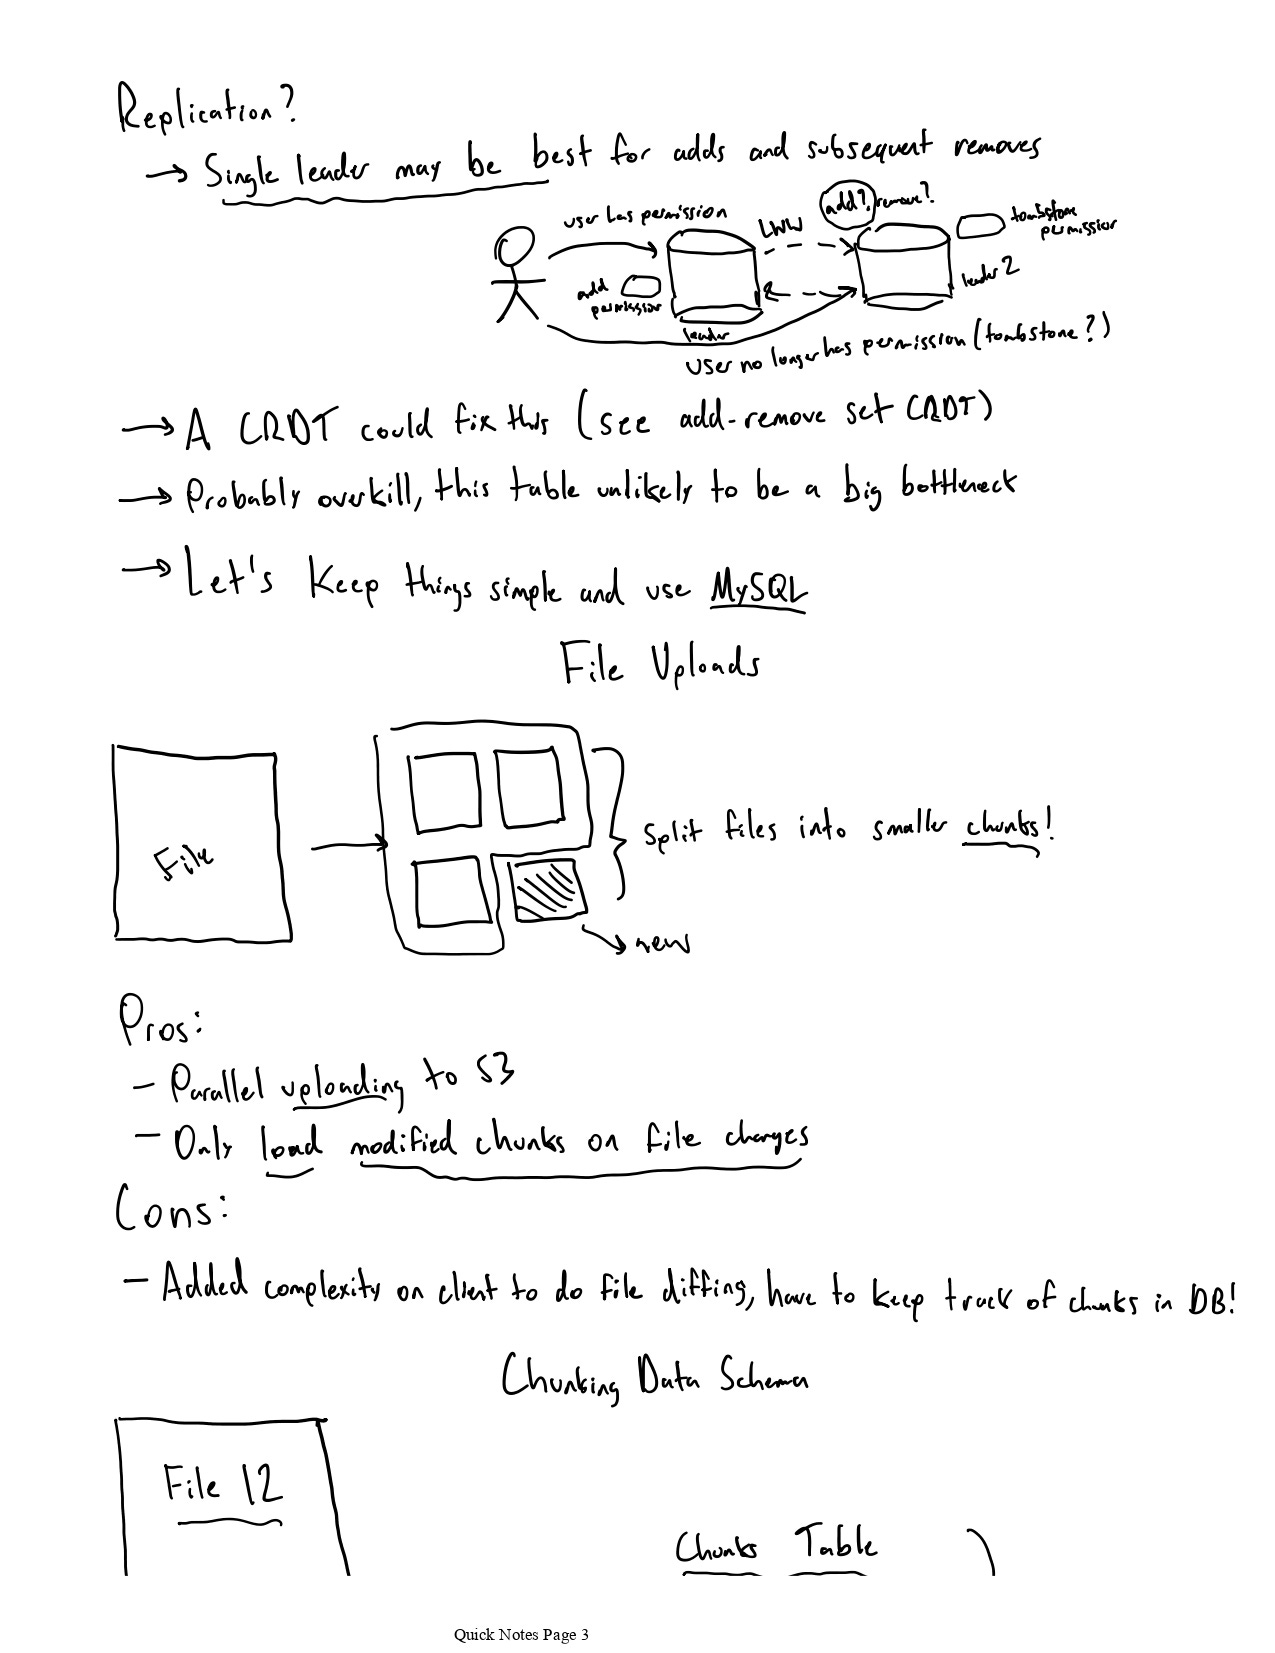 Replication?
→ Single leader may be best for adds and subsequent removes
user has permission
LWW
add?, remove?
tombstone
permission
add
permission
leader
leader 2
user no longer has permission (tombstone?)
→ A CRDT could fix this (see add-remove set CRDT)
→ Probably overkill, this table unlikely to be a big bottleneck
→ Let's keep things simple and use MySQL
File Uploads
File
Split files into smaller chunks!
new
Pros:
- Parallel uploading to S3
- Only load modified chunks on file changes
Cons:
- Added complexity on client to do file diffing, have to keep track of chunks in DB!
Chunking Data Schema
File 12
Chunks Table
Quick Notes Page 3